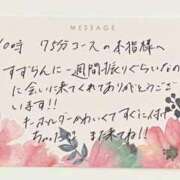 MESSAGE
10時 75分コースの本指様へ
すずらんに一週間振りぐらいなの
に会いに来てくれてありがとうござ
います!!
キーホルダーかわいくて すぐに付け
ちゃった また来てね!!